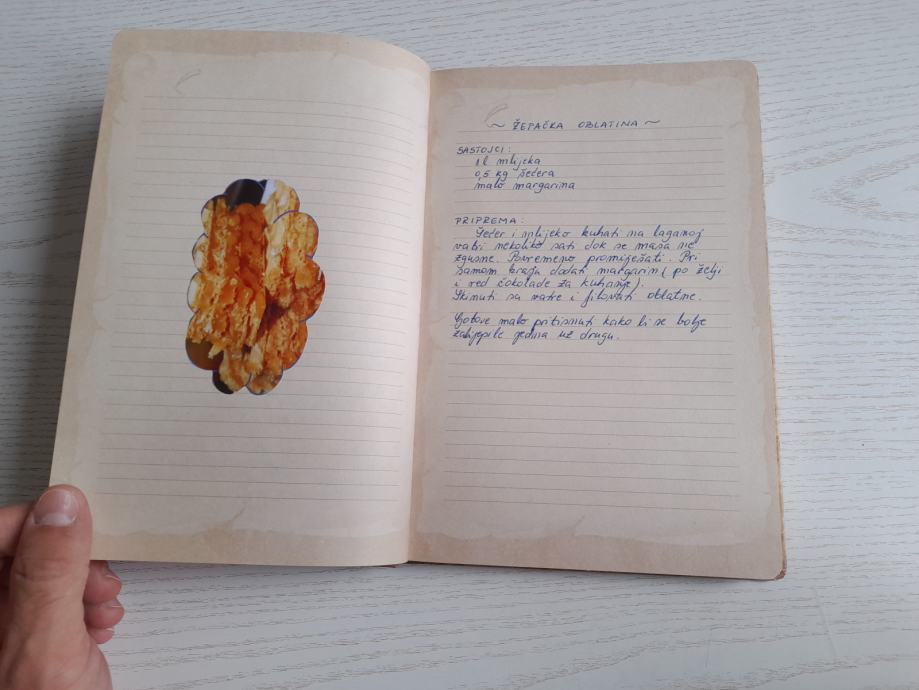 ~ ŽEPAČKA OBLATINA ~
SASTOJCI:
1l mlijeka
0,5 kg šećera
malo margarina
PRIPREMA:
Šećer i mlijeko kuhati na laganoj
vatri nekoliko sati dok se masa ne
zgusne. Povremeno promiješati. Pri
samom kraju dodati margarin (po želji
i red čokolade za kuhanje).
Skinuti sa vatre i filovati oblatne.
Gotove malo pritisnuti kako bi se bolje
zalijepile jedna uz drugu.